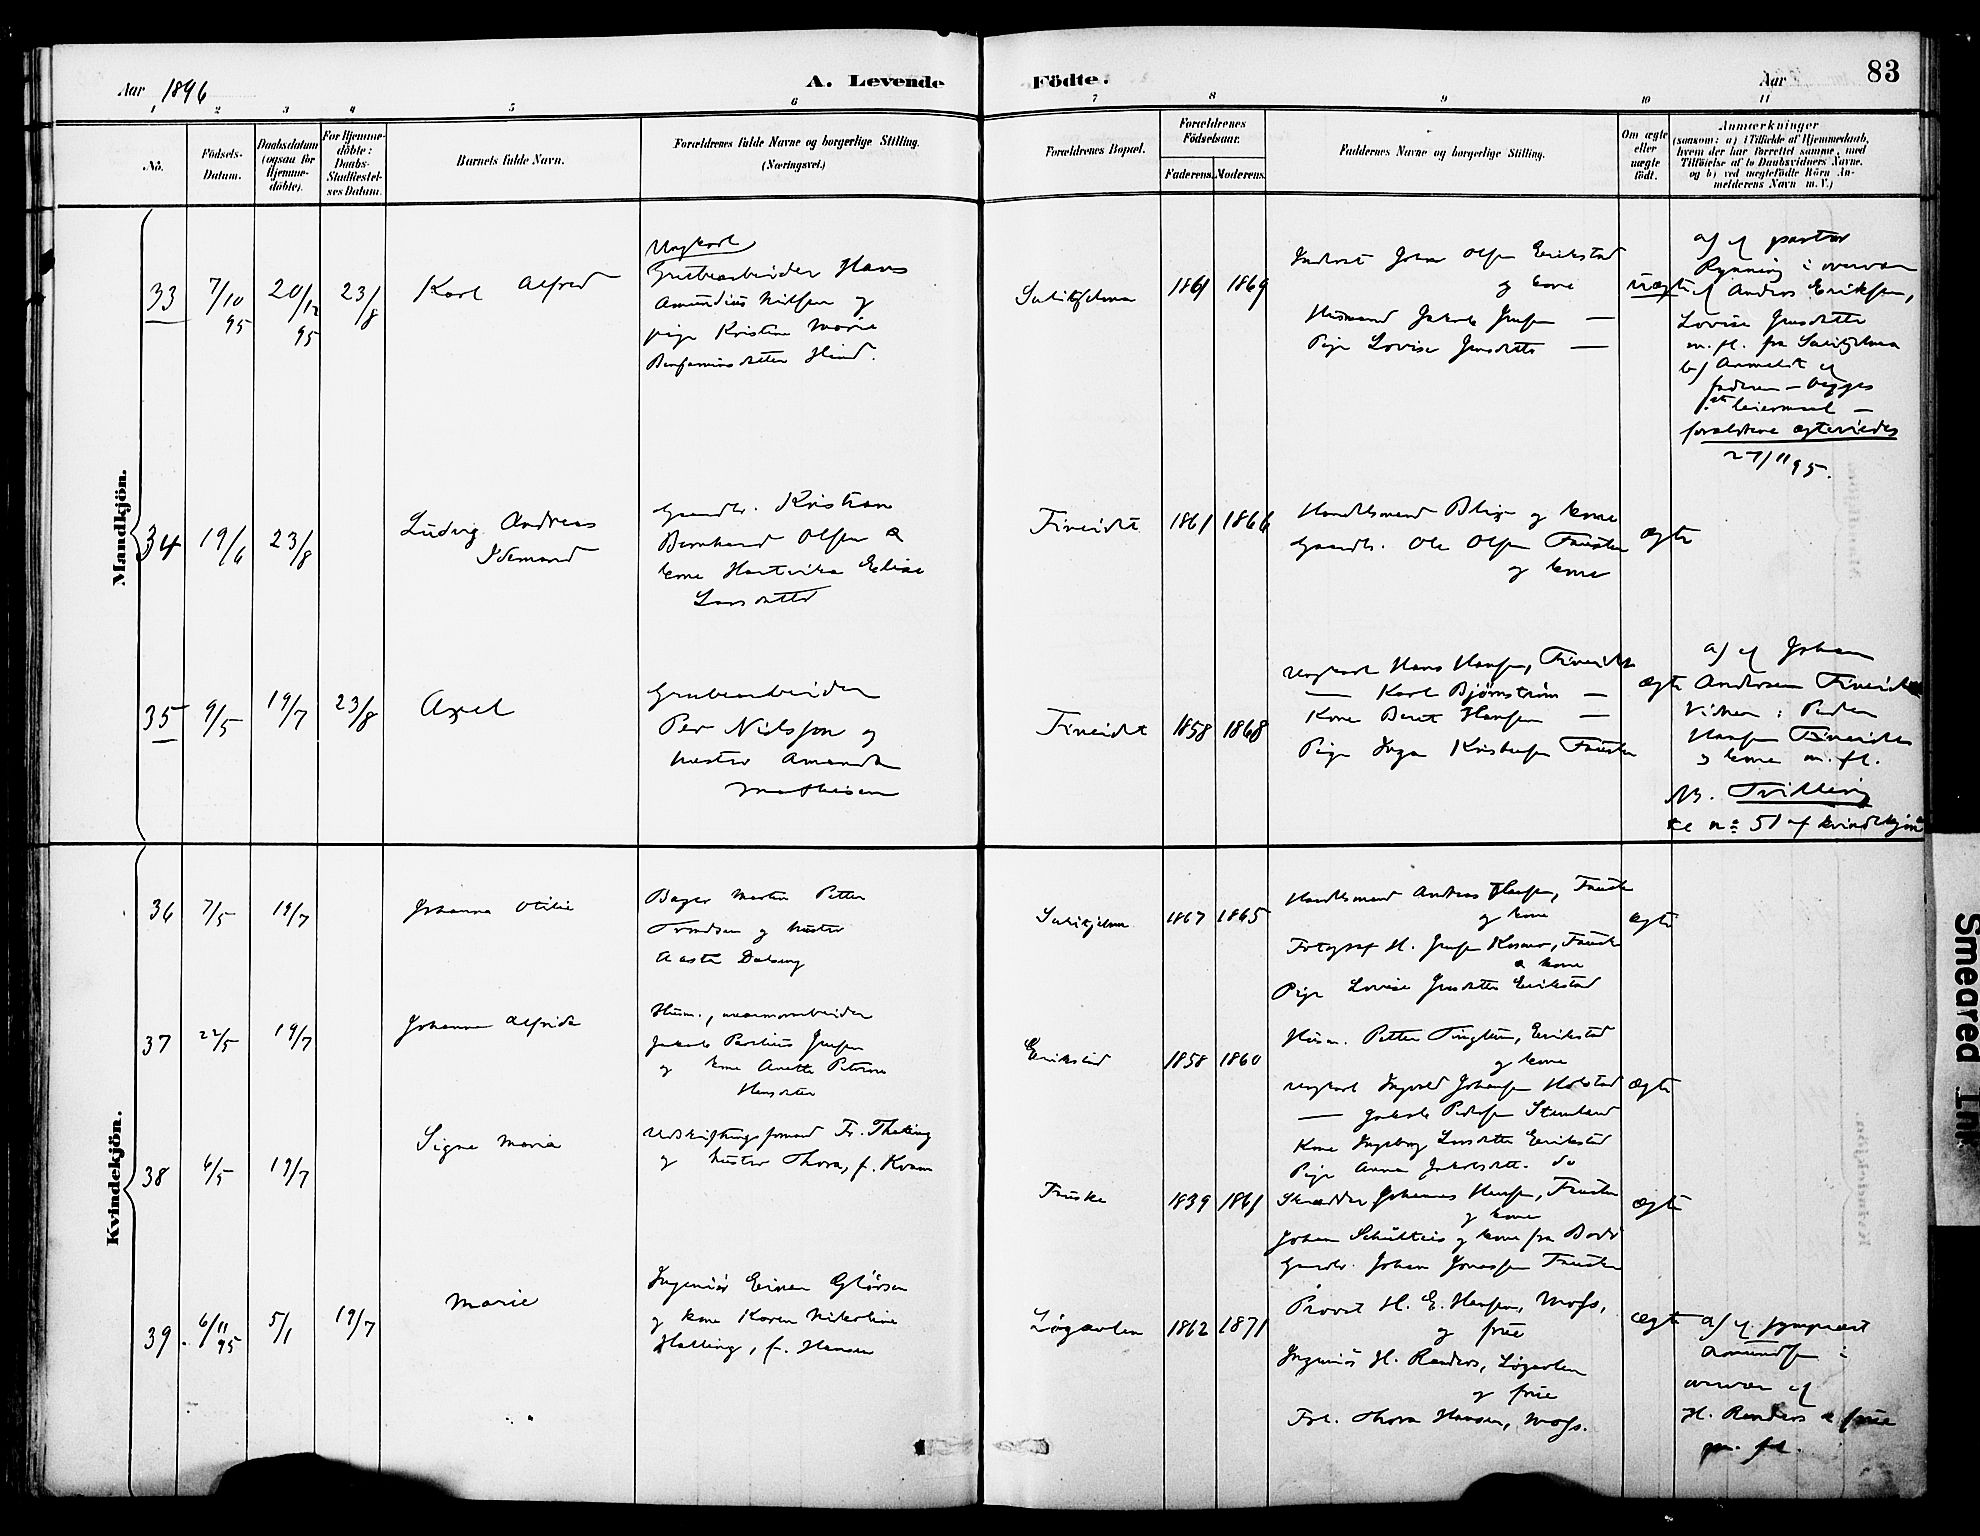 Aar 1896
A. Levende
Födte.
Aar
83
1 2 3 4 5 6 7 8 9 10 11
No.
Födsels-
Datum.
Daabsdatum
(ogsaa for
Hjemme-
döbte).
For Hjemme-
döbte:
Daabs-
Stadfæstel-
ses Datum.
Barnets fulde Navn.
Forældrenes fulde Navne og borgerlige Stilling.
(Næringsvei.)
Forældrenes Bopæl.
Forældrenes
Födselsaar.
Faderens. Moderens.
Faddernes Navne og borgerlige Stilling.
Om ægte
eller
uægte
födt.
Anmærkninger
(saasom: a) i Tilfælde af Hjemmedaab,
hvem der har forrettet samme, med
Tilföielse af to Daabsvidners Navne,
og b) ved uægtefödte Börn An-
melderens Navn m. V.)
Mandkjön.
33
7/10 95
20/12 95
23/8
Karl Alfred
Ungkarl
Grubearbeider Hans
Amundius Nilsen og
pige Kristine Marie
Benjaminsdatter Hind.
Sulitjelma
1861 1869
Inderst Johan Olsen Erikstad
og kone
Husmand Jakob Jensen —
Pige Lovise Jensdatter —
uægte
a) af pastor
Rynning i overvær
af Andreas Eriksen,
Lovise Jensdatter
m. fl. fra Sulitjelma
b) Anmeldt af
faderen – begges
1ste leiermaal –
forældrene ægteviedes
27/11 95.
34
19/6
23/8
Ludvig Andreas
Idemand
Gaardbr. Kristian
Bernhard Olsen &
kone Hartvika Elise
Larsdatter
Fineidet
1861 1866
Handelsmand Blix og kone
Gaardbr. Ole Olsen Fauske
og kone
ægte
35
9/5
19/7
23/8
Axel
Grubearbeider
Per Nielsson og
hustru Amanda
Mathisen
Fineidet
1858 1868
Ungkarl Hans Hansen, Fineidet
— Karl Bjørnstrøm —
Kone Beret Hansen —
Pige Inga Kristensen Fauske
ægte
a) af Johan
Andersen Fineidet
Vidner: Peder
Hansen Fineidet
og kone m. fl.
NB. Tvilling
til no 51 af kvindekjøn
Kvindekjön.
36
7/5
19/7
Johanna Otilie
Bager Martin Petter
Trondsen og hustru
Aasta Dalseng
Sulitjelma
1867 1865
Handelsmand Andreas Hansen, Fauske
og kone
Fotograf H. Jensen Kosmo, Fauske
& kone
Pige Lovise Jensdatter Erikstad
ægte
37
22/5
19/7
Johanna Alfrida
Husm., marmorarbeider
Jakob Parelius Jensen
og kone Anette Petrine
Hansdatter
Erikstad
1858 1860
Husm. Petter Tingbem, Erikstad
og kone
Ungkarl Ingvald Johansen Holstad
— Jakob Pedersen Stemland
Kone Ingeborg Larsdatter Erikstad
Pige Anna Jakobsdatt. do
ægte
38
6/5
19/7
Signe Marie
Udskiftningsformand Fr. Thesing
og hustru Thora, f. Kvam
Fauske
1839 1861
Skrædder Johannes Hansen, Fauske
og kone
Johan Schulteis og kone fra Bodø
Gaardbr. Johan Jonassen Fauske
ægte
39
6/11 95
5/1
19/7
Marie
Ingeniør Einar Glørsen
og kone Karen Nikoline
Halling, f. Hansen
Løgavlen
1862 1871
Provst H. E. Hansen, Moss,
og frue
Ingeniør H. Randers, Løgavlen
og frue
Frk. Thora Hansen, Moss.
ægte
a) af sognepræst
Amundsen i
overvær af
H. Randers & frue
m. fl.
Smeared Ink